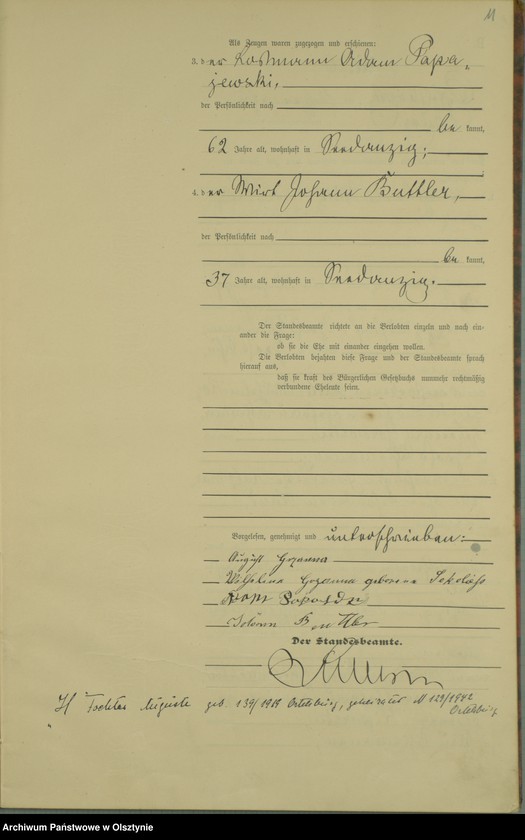 11
Als Zeugen waren zugezogen und erschienen:
3. der Losmann Adam Papa-
jewski,
der Persönlichkeit nach
be kannt,
62 Jahre alt, wohnhaft in Seedanzig;
4. der Wirt Johann Buttler,
der Persönlichkeit nach
be kannt,
37 Jahre alt, wohnhaft in Seedanzig.
Der Standesbeamte richtete an die Verlobten einzeln und nach ein-
ander die Frage:
ob sie die Ehe mit einander eingehen wollen.
Die Verlobten bejahten diese Frage und der Standesbeamte sprach
hierauf aus,
daß sie kraft des Bürgerlichen Gesetzbuchs nunmehr rechtmäßig
verbundene Eheleute seien.
Vorgelesen, genehmigt und unterschrieben:
August
Wilhelmine geborene
Johann Buttler
Der Standesbeamte.
Tochter Auguste geb. 139/1919 Ortelsburg, geheiratet 129/1942
Ortelsburg
Archiwum Państwowe w Olsztynie